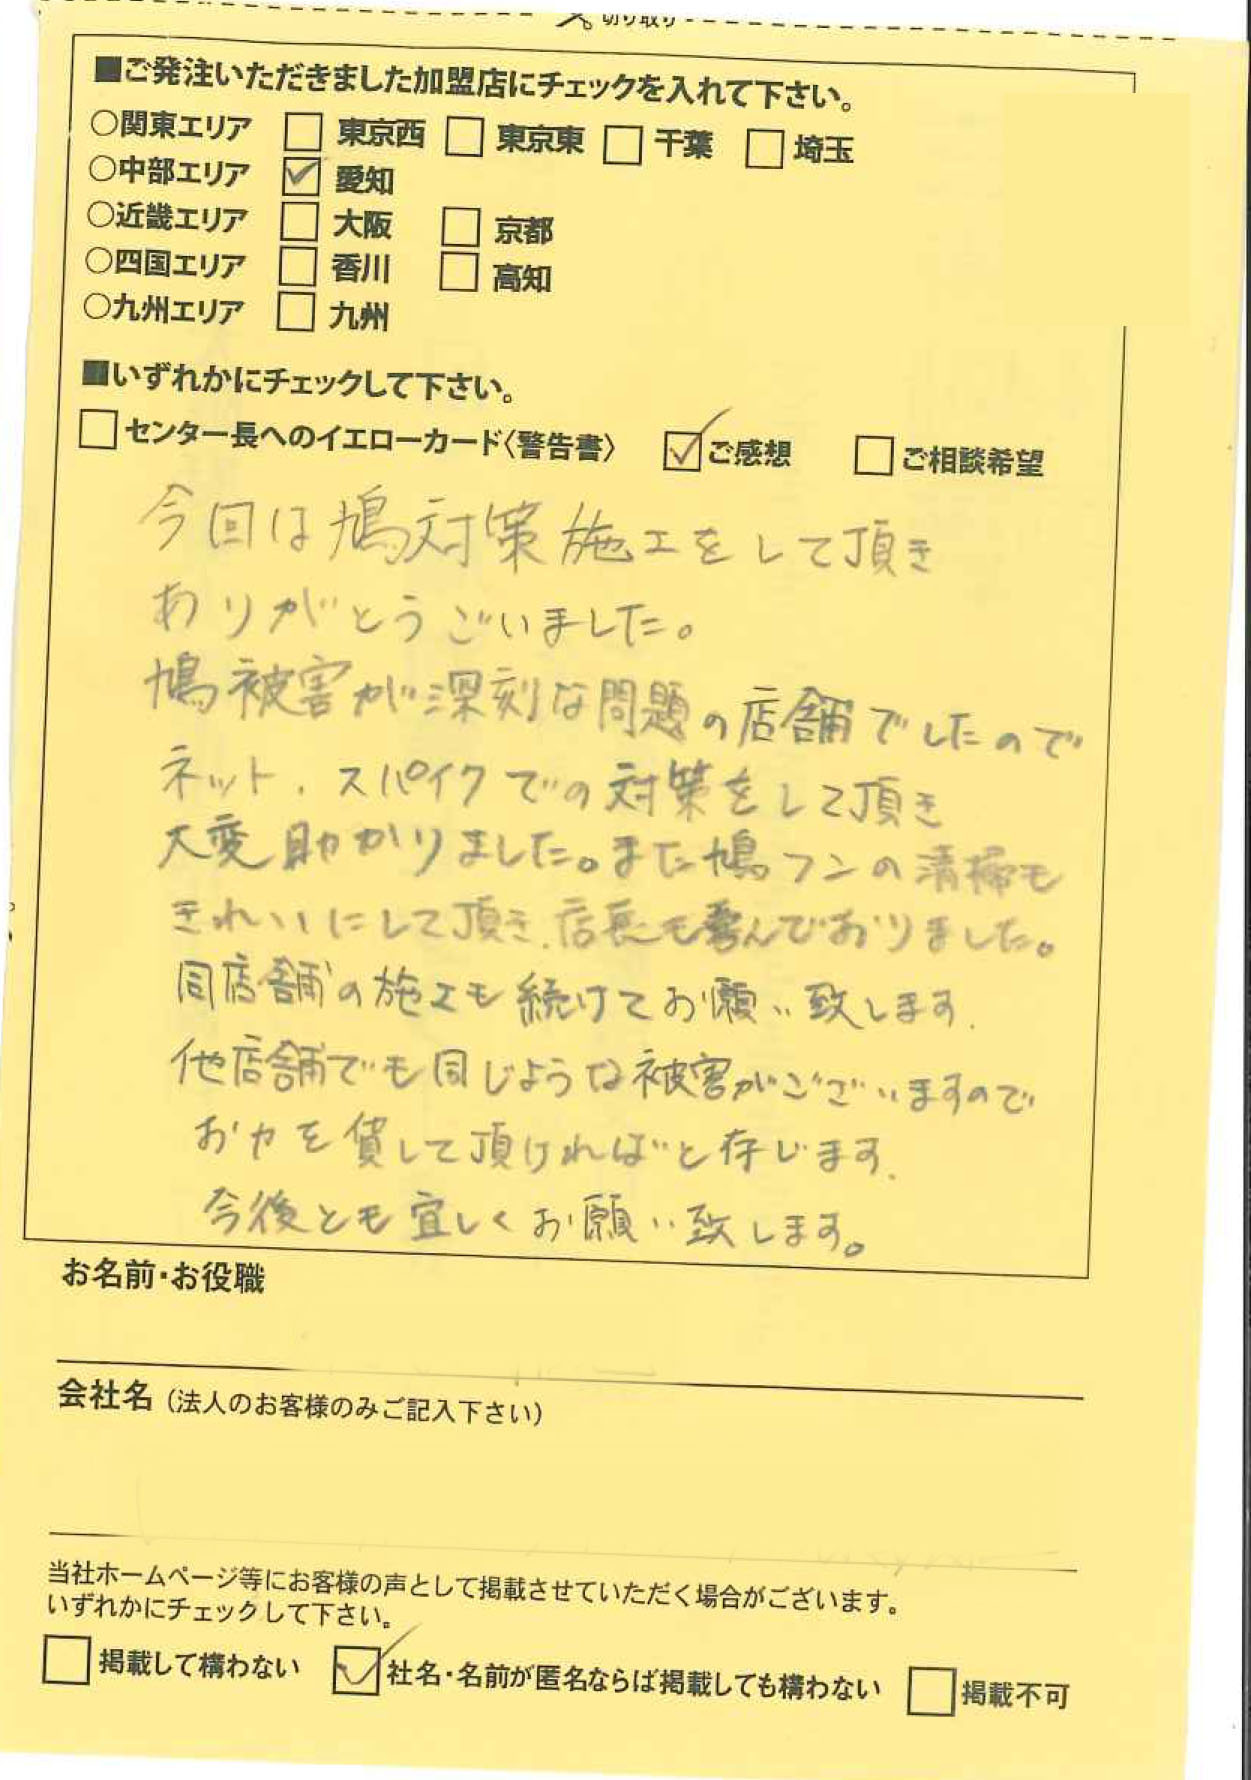 切り取り
■ご発注いただきました加盟店にチェックを入れて下さい。
○関東エリア □ 東京西 □ 東京東 □ 千葉 □ 埼玉
○中部エリア ☑ 愛知
○近畿エリア □ 大阪 □ 京都
○四国エリア □ 香川 □ 高知
○九州エリア □ 九州
■いずれかにチェックして下さい。
□センター長へのイエローカード〈警告書〉 ☑ご感想 □ご相談希望
今回は鳩対策施工をして頂き
ありがとうございました。
鳩被害が深刻な問題の店舗でしたので
ネット、スパイクでの対策をして頂き
大変助かりました。また鳩フンの清掃も
きれいにして頂き、店長も喜んでおりました。
同店舗の施工も続けてお願い致します。
他店舗でも同じような被害がございますので
お力を貸して頂ければと存じます。
今後とも宜しくお願い致します。
お名前・お役職
会社名（法人のお客様のみご記入下さい）
当社ホームページ等にお客様の声として掲載させていただく場合がございます。
いずれかにチェックして下さい。
□掲載して構わない ☑社名・名前が匿名ならば掲載しても構わない □掲載不可